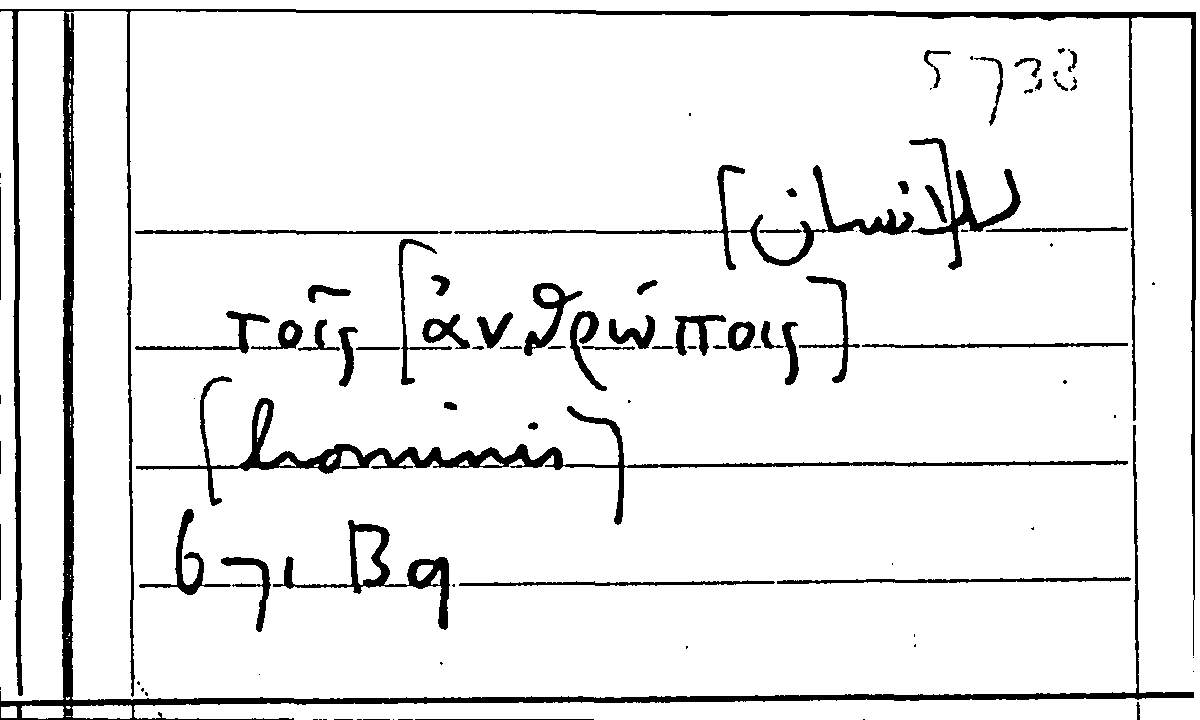 5738
لـ[لانسان]
τοῖς [ἀνθρώποις]
[hominis]
671 B9